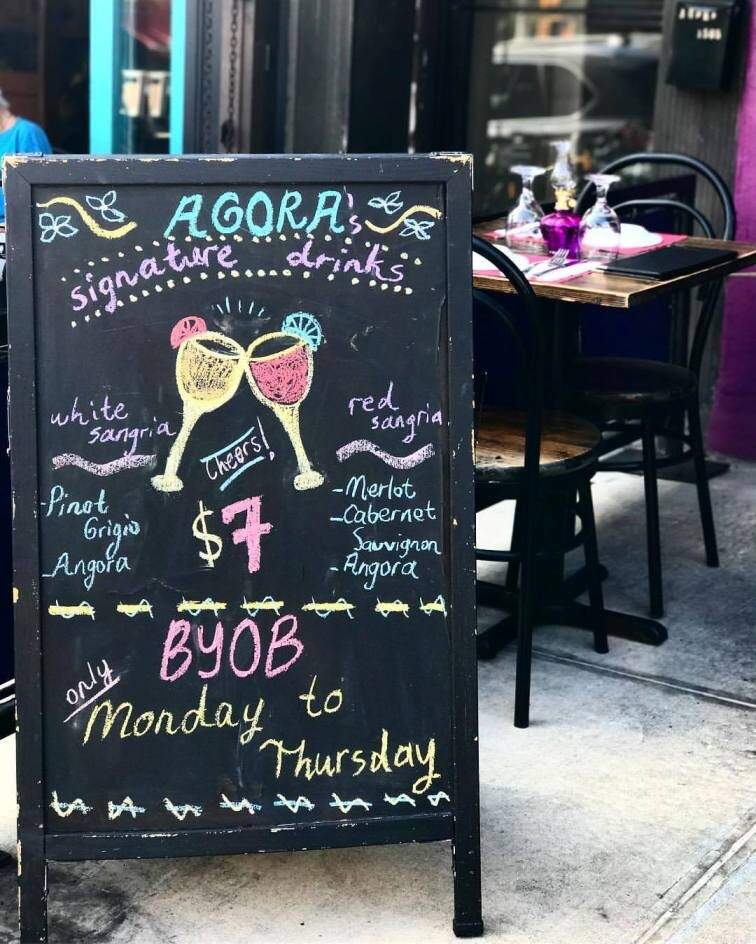 AGORA's
signature drinks
white
sangria
Cheers!
red
sangria
-Pinot
Grigio
-Angora
$7
-Merlot
-Cabernet
Sauvignon
-Angora
BYOB
only
Monday to
Thursday